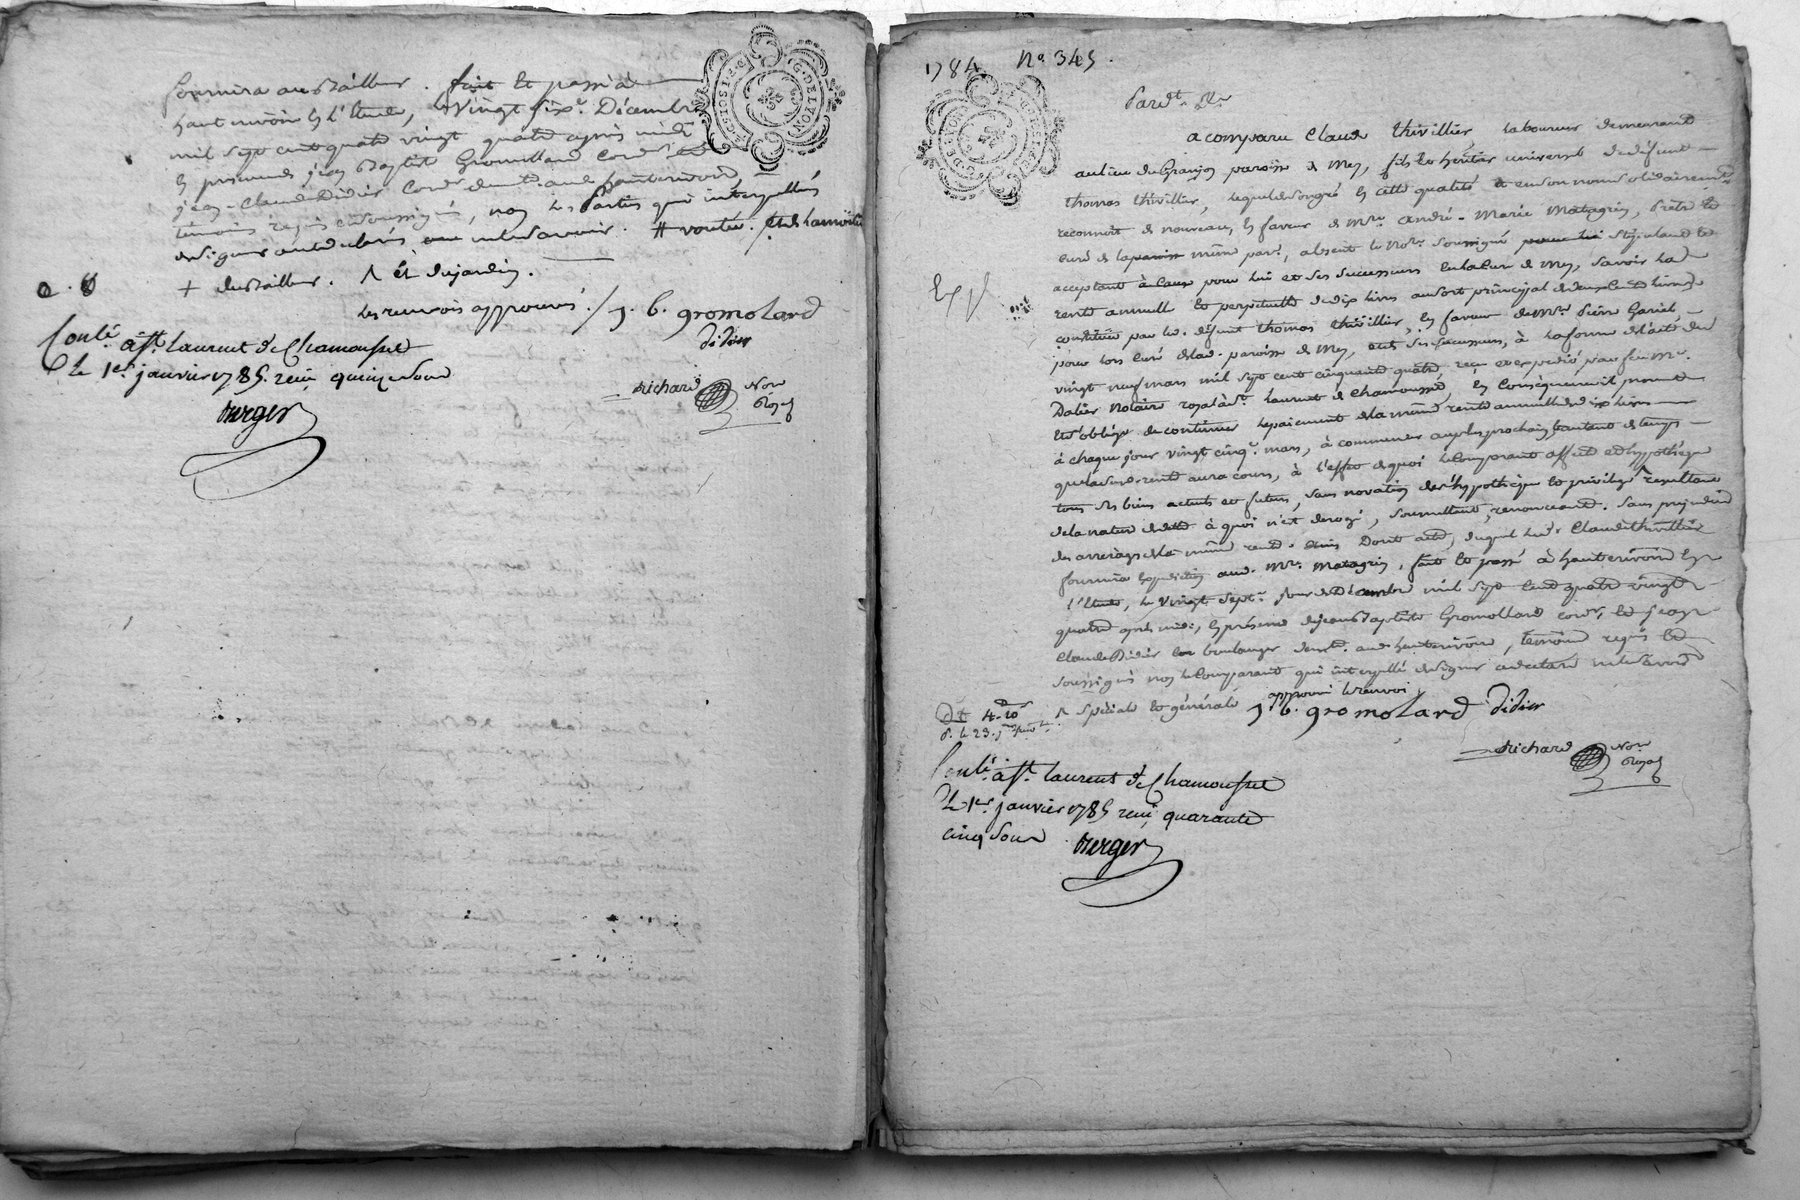 fournira audit tailleur. fait et passé à
haut rivoire en l'étude, le vingt six.e Décembre
mil sept cent quatre vingt quatre après midi
en présence jean Baptiste Gromollard Cord.r et
jean-Claude Didier Cord.r dem.t aud. hauterivoire,
témoins requis et soussignés, non les Parties qui interpellées
de signer ont déclaré ne le savoir. # voutée.
+ dud. tailleur. ^ et du jardin.
les renvois approuvés ./ J. b. gromolard
didier
richard No.re Royal
Contlé à St. Laurent de Chamousset
Le 1er. janvier 1785. reçu quinze sous
Berger
G. DE LYON
1784 N.o 345.
Pard.t &r
a comparu Claude thivillier laboureur demeurant
au lieu du Granjon paroisse de Mey, fils et héritier universel de défunt
thomas thivillier, lequel de son gré en cette qualité et en son nom solidairement
reconnoit de nouveau, en faveur de M.re andré-Marie Matagrin, Prêtre et
curé de la même par.e, absent le No.re soussigné stipulant et
acceptant à cause pour lui et ses successeurs en la cure de Mey, savoir la
rente annuelle et perpétuelle de dix livres au sort principal de deux cent livres
constituée par led. défunt thomas thivillier, en faveur de M.re Pierre Gariel,
pour lors curé de lad. paroisse de Mey, et de ses successeurs, à la forme de l'acte du
vingt neuf mars mil sept cent cinquante quatre, reçu et expédié par feu M.e
Dalier Notaire royal à St. Laurent de Chamousset, en conséquence il promet
et s'oblige de continuer le paiement de la même rente annuelle de dix livres
à chaque jour vingt cinq.e mars, à commencer au plus prochain, et autant de temps
que lad. rente aura cours, à l'effet de quoi le Comparant affecte et hypothèque
tous ses biens actuels et futurs, sans novation des hypothèque et privilège ^ résultant
de la nature de dette à quoi n'est dérogé, soumettant, renonceant. Sans préjudice
des arrérages de la même rente. Dont acte, duquel led. Claude thivillier
fournira expédition aud. M.re Matagrin, fait et passé à hauterivoire en
l'étude, le vingt sept.e jour de Décembre mil sept cent quatre vingt
quatre après midi, en présence de jean Baptiste Gromollard cord.r et jean
Claude Didier boulanger dem.t aud. hauterivoire, témoins requis et
soussignés non le Comparant qui interpellé de signer a déclaré ne le savoir
^ spéciale et générale approuvé le renvoi
J. b. gromolard didier
richard No.re Royal
Contlé à St. Laurent de Chamousset
Le 1er. janvier 1785 reçu quarante
cinq sous Berger